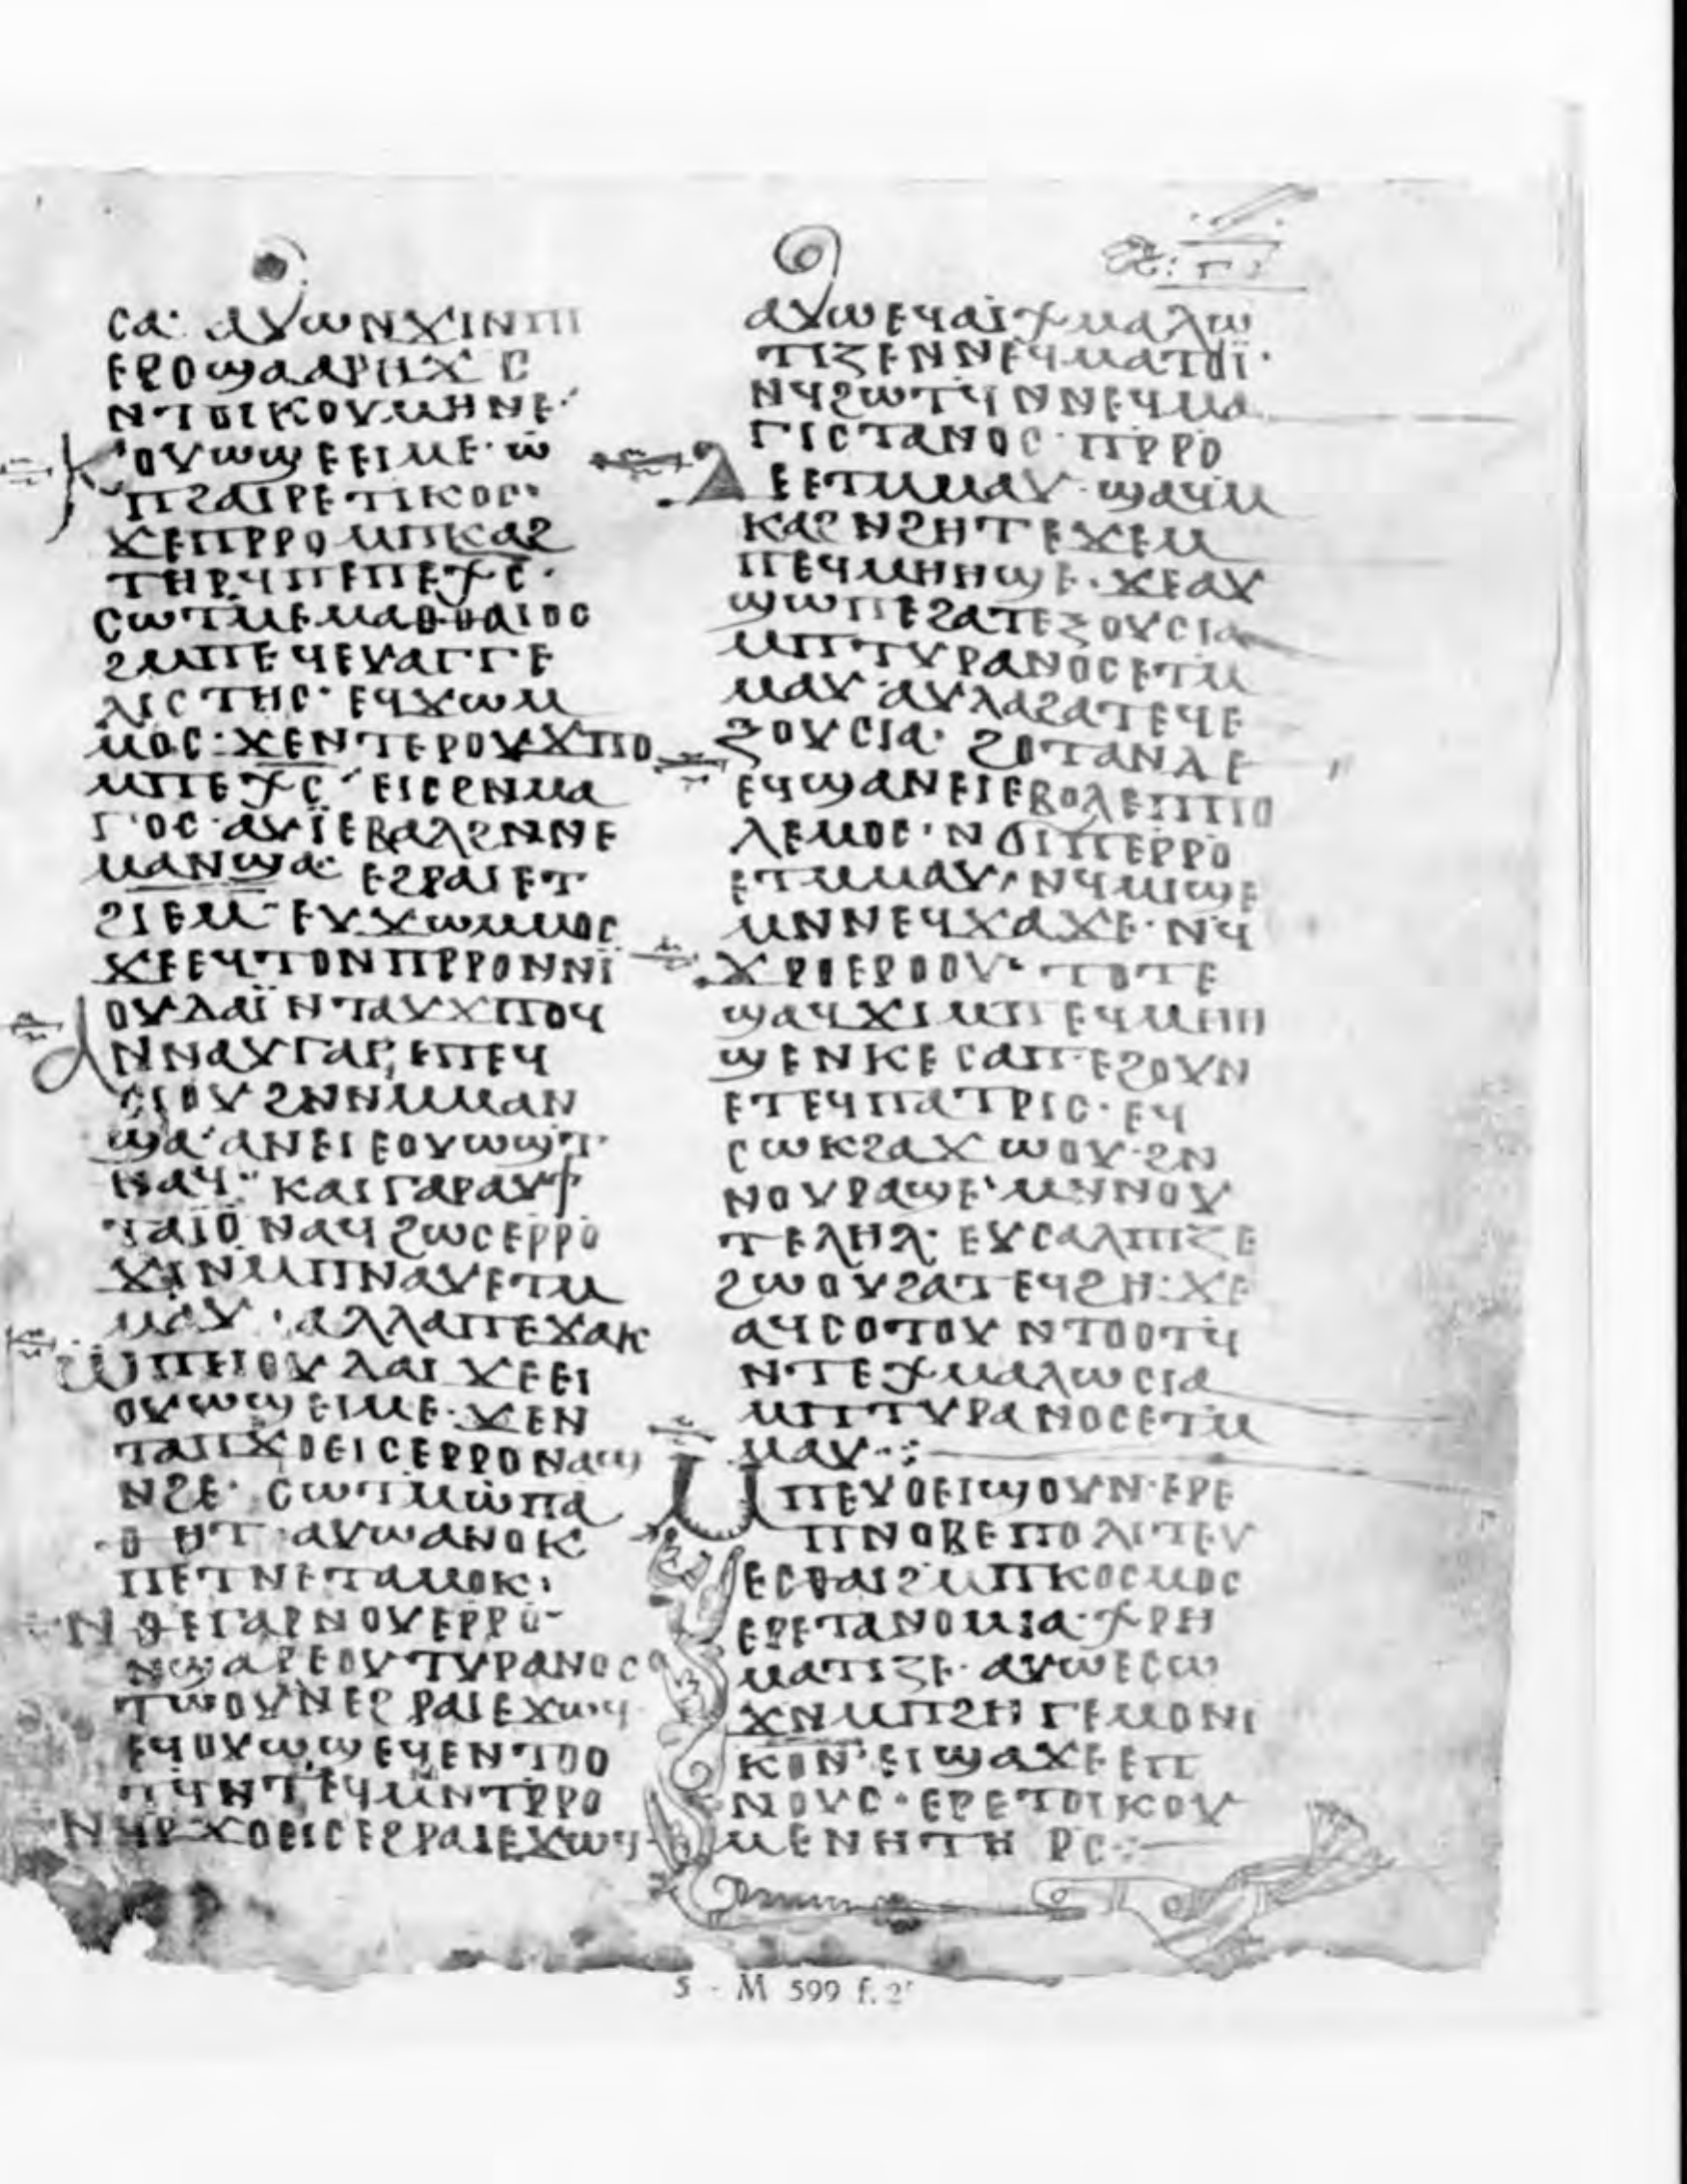 ⲥⲁ· ⲁⲩⲱ ⲛϫⲓⲛⲡⲓ
ⲉⲣⲟ ϣⲁⲁⲣⲏϫ ⲥ
ⲛⲧⲟⲓⲕⲟⲩⲙⲏⲛⲉ·
ⲕⲟⲩⲱϣ ⲉⲉⲓⲙⲉ· ⲱ
ⲡϩⲁⲓⲣⲉⲧⲓⲕⲟⲥ·
ϫⲉⲡⲣⲣⲟ ⲙⲡⲕⲁϩ
ⲧⲏⲣϥ ⲡⲉ ⲡⲉⲭⲥ·
ⲥⲱⲧⲙ ⲉⲙⲁⲑⲑⲁⲓⲟⲥ
ϩⲙⲡⲉϥⲉⲩⲁⲅⲅⲉ
ⲗⲓⲥⲧⲏⲥ· ⲉϥϫⲱⲙ
ⲙⲟⲥ: ϫⲉⲛⲧⲉⲣⲟⲩϫⲡⲟ
ⲙⲡⲉⲭⲥ· ⲉⲓⲥϩⲛⲙⲁ
ⲅⲟⲥ ⲁⲩⲓ̈ ⲉⲃⲁⲗϩⲛⲛⲉ
ⲙⲁⲛϣⲁ· ⲉϩⲣⲁⲓ ⲉⲧ
ϩⲓⲉⲙ· ⲉⲩϫⲱⲙⲙⲟⲥ
ϫⲉⲉϥⲧⲟⲛ ⲡⲣⲣⲟ ⲛⲛⲓ̈
ⲟⲩⲇⲁⲓ̈ ⲛⲧⲁⲩϫⲡⲟϥ
ⲁⲛⲛⲁⲩ ⲅⲁⲣ, ⲉⲡⲉϥ
ⲥⲓⲟⲩ ϩⲛⲛⲙⲙⲁⲛ
ϣⲁ· ⲁⲛⲉⲓ ⲉⲟⲩⲱϣⲧ
ⲛⲁϥ· ⲕⲁⲓⲅⲁⲣ ⲁⲩϯ
ⲧⲁⲓⲟ ⲛⲁϥ ϩⲱⲥ ⲉⲣⲣⲟ
ϫⲓⲛⲙⲡⲛⲁⲩ ⲉⲧⲙ
ⲙⲁⲩ· ⲁⲗⲗⲁ ⲡⲉϫⲁⲕ
ⲱⲡⲓⲟⲩⲇⲁⲓ ϫⲉⲉⲓ
ⲟⲩⲱϣ ⲉⲓⲙⲉ· ϫⲉⲛ
ⲧⲁⲡϫⲟⲉⲓⲥ ⲉⲣⲣⲟ ⲛⲁϣ
ⲛϩⲉ· ⲥⲱⲧⲙ ⲱⲡⲁ
ⲑⲏⲧ· ⲁⲩⲱ ⲁⲛⲟⲕ
ⲡⲉⲧⲛⲉⲧⲁⲙⲟⲕ·
ⲛⲑⲉⲓⲅⲁⲣ ⲛⲟⲩⲉⲣⲣⲟ·
ⲛϣⲁⲣⲉⲟⲩⲧⲩⲣⲁⲛⲟⲥ
ⲧⲱⲟⲩⲛ ⲉϩⲣⲁⲓ ⲉϫⲱϥ
ⲉϥⲟⲩⲱϣ ⲉϥⲉⲛⲧⲟⲟ
ⲧϥ ⲛⲧⲉϥⲙⲛⲧⲣⲣⲟ
ⲛϥⲣϫⲟⲉⲓⲥ ⲉϩⲣⲁⲓ ⲉϫⲱϥ·
ⲁⲩⲱ ⲉϥⲁⲓⲭⲙⲁⲗⲱ
ⲧⲓⲍⲉ ⲛⲛⲉϥⲙⲁⲧⲟⲓ̈·
ⲛϥϩⲱⲧϥ ⲛⲛⲉϥⲙⲁ
ⲅⲓⲥⲧⲁⲛⲟⲥ· ⲡⲣⲣⲟ
ⲇⲉ ⲉⲧⲙⲙⲁⲩ· ϣⲁϥⲙ
ⲕⲁϩ ⲛϩⲏⲧ ⲉϫⲉⲙ
ⲡⲉϥⲙⲏⲏϣⲉ· ϫⲉⲁⲩ
ϣⲱⲡⲉ ϩⲁⲧⲉⲝⲟⲩⲥⲓⲁ
ⲙⲡⲧⲩⲣⲁⲛⲟⲥ ⲉⲧⲙ
ⲙⲁⲩ· ⲁⲩⲗⲁϩⲁⲧⲉϥⲉ
ⲝⲟⲩⲥⲓⲁ· ϩⲟⲧⲁⲛ ⲇⲉ
ⲉϥϣⲁⲛⲉⲓ ⲉⲃⲟⲗ ⲉⲡⲡⲟ
ⲗⲉⲙⲟⲥ· ⲛϭⲓⲡⲉⲣⲣⲟ
ⲉⲧⲙⲙⲁⲩ· ⲛϥⲙⲓϣⲉ
ⲙⲛⲛⲉϥϫⲁϫⲉ· ⲛϥ
ϫⲣⲟ ⲉⲣⲟⲟⲩ· ⲧⲟⲧⲉ
ϣⲁϥϫⲓ ⲙⲡⲉϥⲙⲏⲏ
ϣⲉ ⲛⲕⲉⲥⲁⲡ ⲉϩⲟⲩⲛ
ⲉⲧⲉϥⲡⲁⲧⲣⲓⲥ· ⲉϥ
ⲥⲱⲕ ϩⲁϫⲱⲟⲩ· ϩⲛ
ⲛⲟⲩⲣⲁϣⲉ· ⲙⲛⲛⲟⲩ
ⲧⲉⲗⲏⲗ· ⲉⲩⲥⲁⲗⲡⲓⲍⲉ
ϩⲱⲟⲩ ϩⲁⲧⲉϥϩⲏ: ϫⲉ
ⲁϥⲥⲟⲧⲟⲩ ⲛⲧⲟⲟⲧϥ
ⲛⲧⲉⲭⲙⲁⲗⲱⲥⲓⲁ
ⲙⲡⲧⲩⲣⲁⲛⲟⲥ ⲉⲧⲙ
ⲙⲁⲩ·:
ⲙⲡⲉⲩⲟⲉⲓϣ ⲟⲩⲛ· ⲉⲣⲉ
ⲡⲛⲟⲃⲉ ⲡⲟⲗⲓⲧⲉⲩ
ⲉⲥⲑⲁⲓ ϩⲙⲡⲕⲟⲥⲙⲟⲥ
ⲉⲣⲉⲧⲁⲛⲟⲙⲓⲁ· ⲭⲣⲏ
ⲙⲁⲧⲓⲍⲉ· ⲁⲩⲱ ⲉⲥⲱ
ϫⲛ ⲙⲡϩⲏⲅⲉⲙⲟⲛⲓ
ⲕⲟⲛ· ⲉⲓϣⲁϫⲉ ⲉⲡ
ⲛⲟⲩⲥ· ⲉⲣⲉⲧⲟⲓⲕⲟⲩ
ⲙⲉⲛⲏ ⲧⲏⲣⲥ·:
5 - M 599 f. 2ʳ